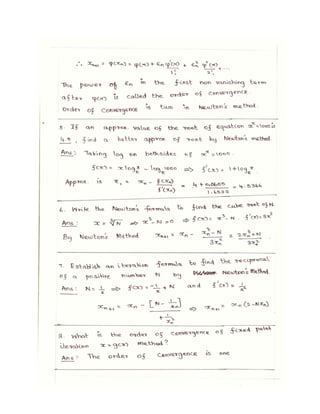 ∴ xₙ₊₁ = φ(xₙ) = φ(α) + εₙ φ'(α)/1! + εₙ² φ''(α)/2! + ...
The power of εₙ in the first non vanishing term
after φ(α) is called the order of convergence.
Order of convergence is two in Newton's method.
5. If an approx. value of the root of equation xˣ=1000 is
4.5, find a better approx. of root by Newton's method.
Ans: Taking log on both sides of xˣ = 1000.
f(x) = x log x - log 1000 ⇒ f'(x) = 1 + log x
Approx. is x₁ = x₀ - f(x₀)/f'(x₀) = 4.5364
6. Write the Newton's formula to find the cube root of N.
Ans: x = ∛N ⇒ x³ - N = 0 ⇒ f(x) = x³ - N, f'(x) = 3x²
By Newton's Method xₙ₊₁ = xₙ - (xₙ³ - N)/3xₙ² = (2xₙ³ + N)/3xₙ²
7. Establish an iteration formula to find the reciprocal
of a positive number N by Newton's Method.
Ans: N = 1/x ⇒ f(x) = -1/x + N and f'(x) = 1/x²
xₙ₊₁ = xₙ - [N - 1/xₙ] / + 1/xₙ² ⇒ xₙ₊₁ = xₙ(2 - Nxₙ)
8. What is the order of convergence of fixed point
iteration x = g(x) method?
Ans: The order of convergence is one